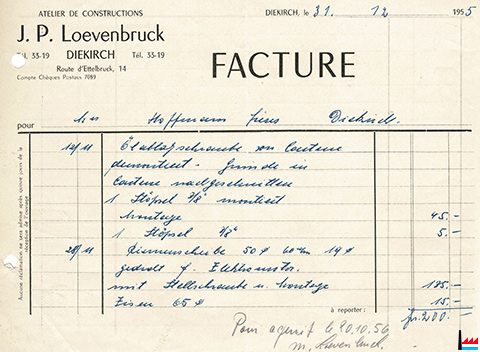 ATELIER DE CONSTRUCTIONS
J. P. Loevenbruck
Tél. 33-19 DIEKIRCH Tél. 33-19
Route d'Ettelbruck, 14
Compte Chèques Postaux 7089
DIEKIRCH, le 31. 12 1955
FACTURE
pour Hoffmann frères Diekirch.
Aucune réclamation ne sera admise après quinze jours de la réception de l'ouvrage
Ölablaßschraube von Carterre
demontiert - Gewinde in
Carterre nachgeschnitten
1 Stöpsel 3/8" montiert
Montage 45.-
1 Stöpsel 5.-
Riemenscheibe 50 ¢ 19 ¢
gedreht f. Elektromotor.
mit Stellschraube u. Montage 135.-
Eisen 65 ¢ 15.-
à reporter : fr. 200.-
Pour acquit le 20.10.56